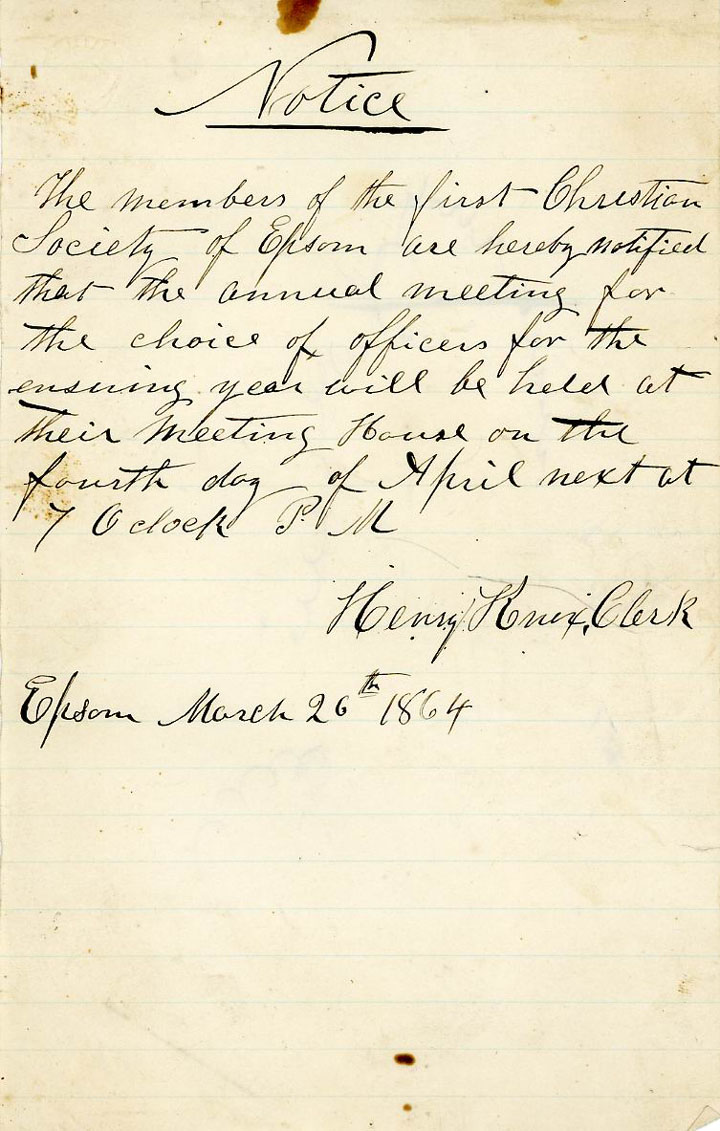 Notice
The members of the first Christian
Society of Epsom are hereby notified
that the annual meeting for
the choice of officers for the
ensuing year will be held at
their Meeting House on the
fourth day of April next at
7 O clock P. M
Henry Knox, Clerk
Epsom March 26th 1864